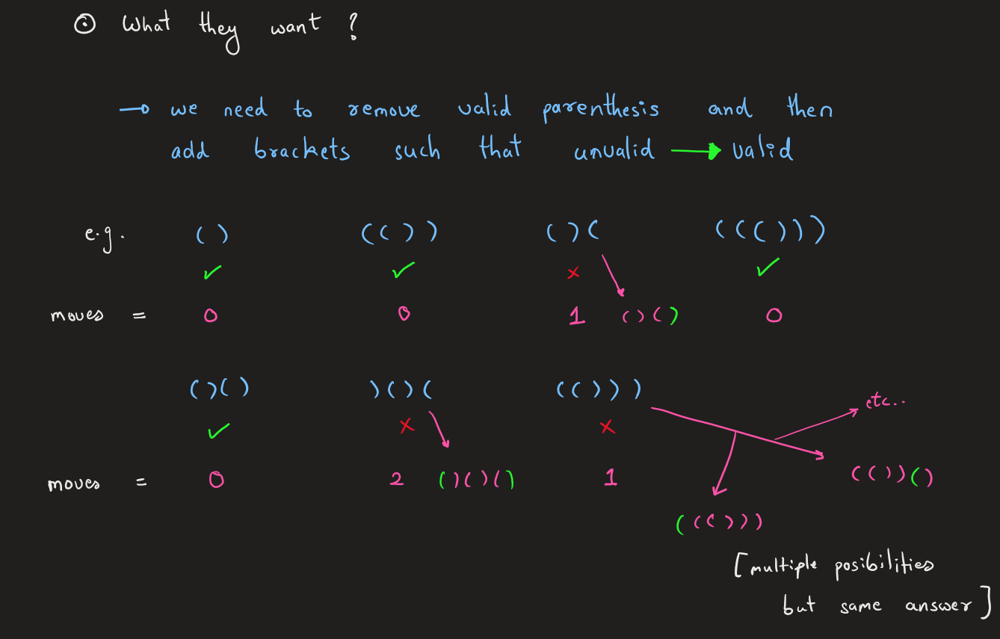 ⊙ What they want ?
→ we need to remove valid parenthesis and then
add brackets such that unvalid → valid
e.g. () (()) ()( ((()))
✓ ✓ × ✓
moves = 0 0 1 ()() 0
()() )()( (()))
✓ × × etc..
moves = 0 2 ()()() 1 (())()
((()))
[multiple posibilities
but same answer]